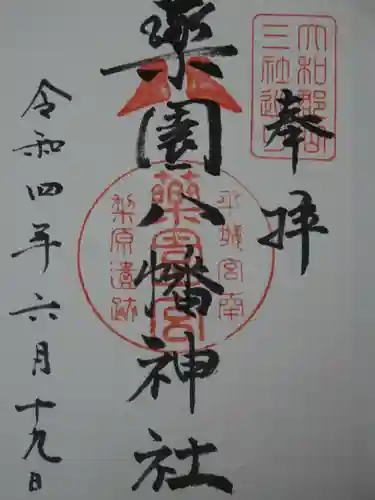 奉拝
大和郡山
三社巡り
薬園八幡神社
平城宮南
薬園宮
梨原遺跡
令和四年六月十九日